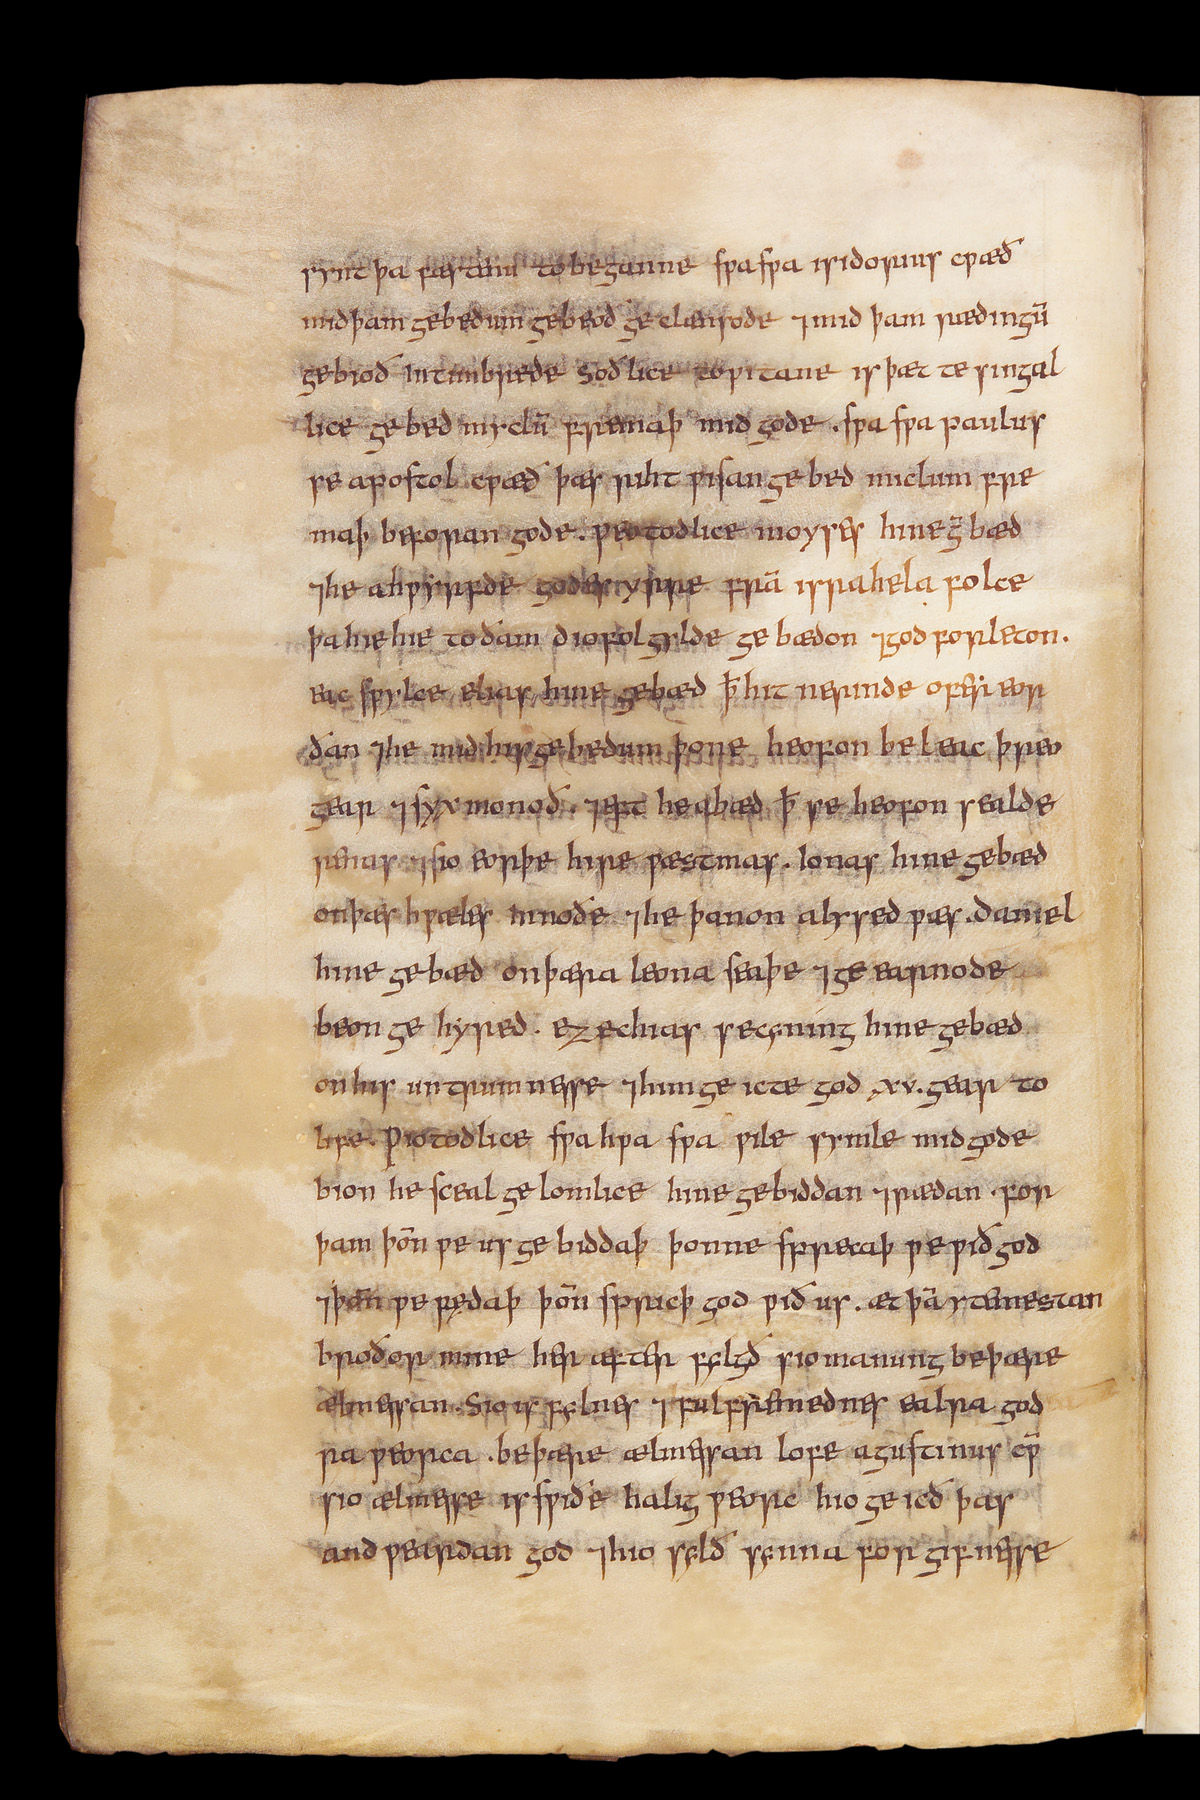 synt þa fæstenu to beganne swa swa isidorius cƿæð
mid þam gebedum gebeoð geclænsode ⁊ mid þam rædingū
gebioð intimbrede Soðlice to ƿitane is þætte singal
lice gebed myclū fremaþ mid gode . sƿa sƿa paulus
se apostol cƿæð þæs rihtƿisan gebed miclum fre
maþ beforan gode . ƿeotodlice moyses hine gebæd
⁊he ahƿyrfde godes yrre frā israhela folce
þa hie hie to ðam diofolgylde gebædon ⁊god forleton .
eac sƿylce elias hine gebæd ꝥ hit ne rinde ofer eor
ðan ⁊he mid his gebedum þone heofon beleac þreo
gear ⁊syx monoð . ⁊eft he abæd ꝥ se heofon sealde
renas ⁊sio eorþe hire ƿæstmas . Ionas hine gebæd
on þæs hƿæles innoðe ⁊he þanon alysed ƿæs . daniel
hine gebæd on þæra leona seaþe ⁊geearnode
beon gehyred . ezechias se cyning hine gebæd
on his untrumnesse ⁊him geicte god .xv. gear to
life . ƿiotodlice sƿa hƿa sƿa ƿile symle mid gode
bion he sceal gelomlice hine gebiddan ⁊rædan . for
þam þoñ ƿe us gebiddaþ þonne sprecaþ ƿe ƿið god
⁊þoñ ƿe rędaþ þoñ spricþ god ƿið us . æt þā ytemestan
broðor mine her æfter fylgð sio manung be þære
ælmessan . Sio is fylnes ⁊fulfremednes ealra god
ra ƿeorca . be þære ælmessan lofe agustinus cƿ̄
sio ælmesse is sƿiðe halig ƿeorc hio geicð þas
andƿeardan god ⁊hio sylð synna forgifnesse